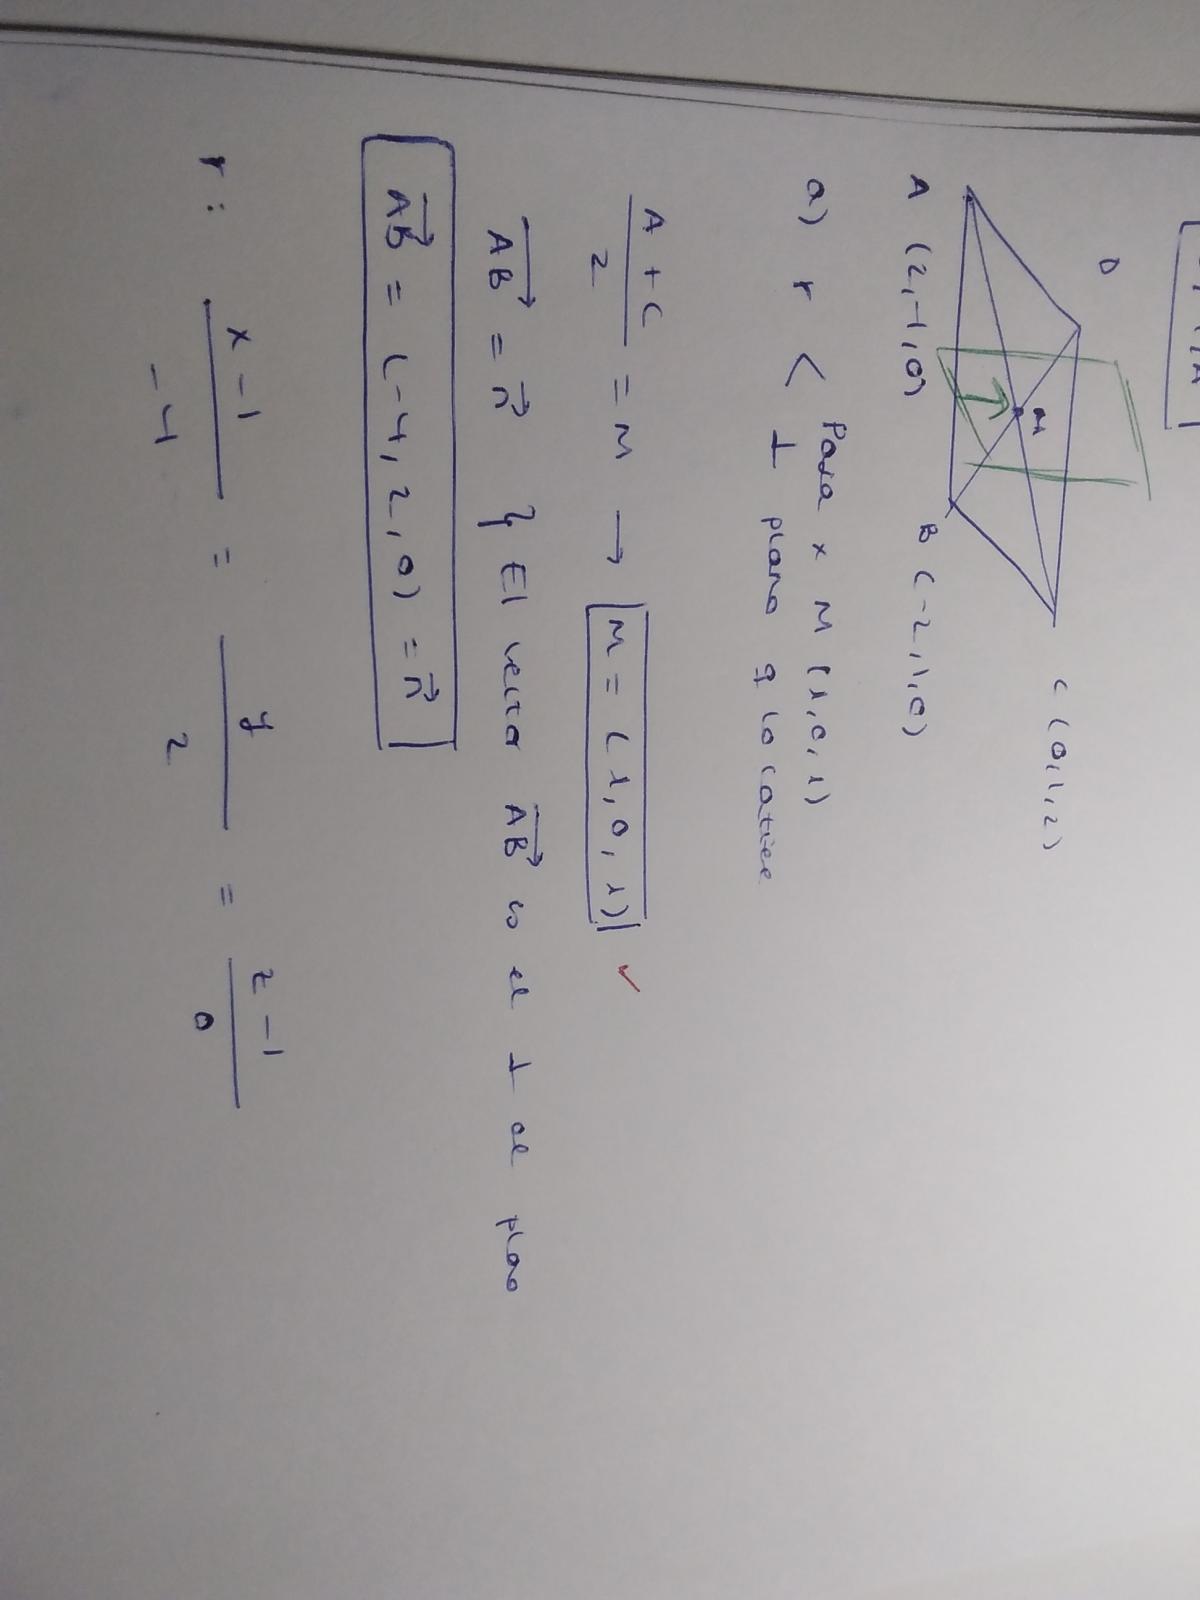 D
C (0,1,2)
M
A (2,-1,0)
B (-2,1,0)
a) r < Pasa x M (1,0,1)
⊥ plano q lo contiee
A + C / 2 = M → M = (1,0,1) ✓
AB = n } El vector AB es el ⊥ al plano
AB = (-4,2,0) = n
r: x-1 / -4 = y / 2 = z-1 / 0